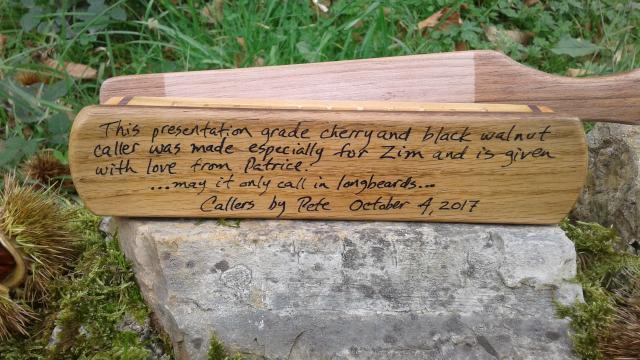 This presentation grade cherry and black walnut
caller was made especially for Zim and is given
with love from Patrice.
...may it only call in longbeards...
Callers by Pete October 4, 2017